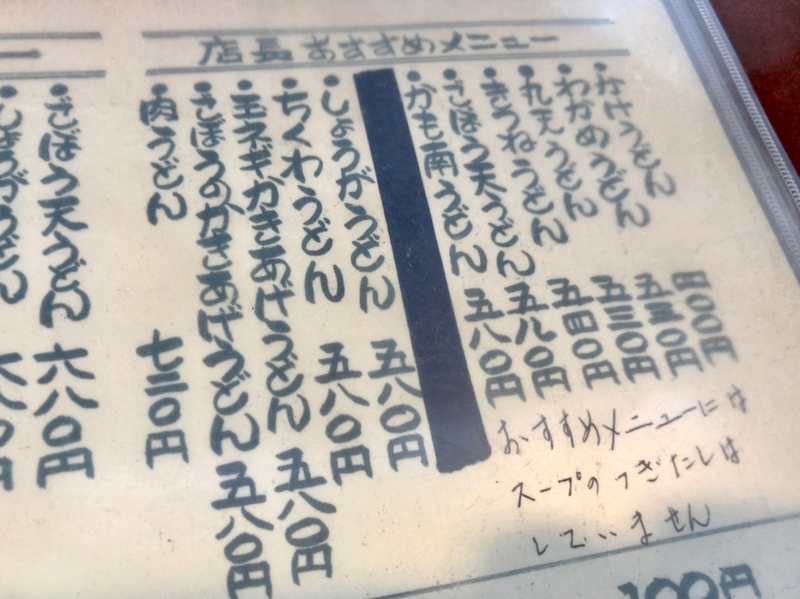 店長おすすめメニュー
・かけうどん 四〇〇円
・わかめうどん 五三〇円
・丸天うどん 五三〇円
・きつねうどん 五四〇円
・ごぼう天うどん 五八〇円
・かも南うどん 五八〇円
・しょうがうどん 五八〇円
・ちくわうどん 五八〇円
・玉ネギかきあげうどん 五八〇円
・ごぼうのかきあげうどん 五八〇円
・肉うどん 七三〇円
おすすめメニューには
スープのつぎたしは
していません
・ごぼう天うどん 六八〇円
・しょうがうどん 六八〇円
100円